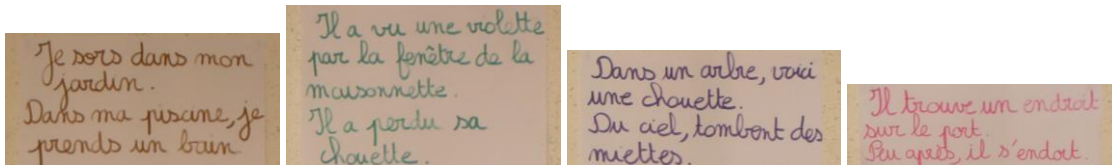 Je sors dans mon
jardin.
Dans ma piscine, je
prends un bain
Il a vu une violette
par la fenêtre de la
maisonnette.
Il a perdu sa
chouette.
Dans un arbre, voici
une chouette.
Du ciel, tombent des
miettes.
Il trouve un endroit
sur le port.
Peu après, il s'endort.